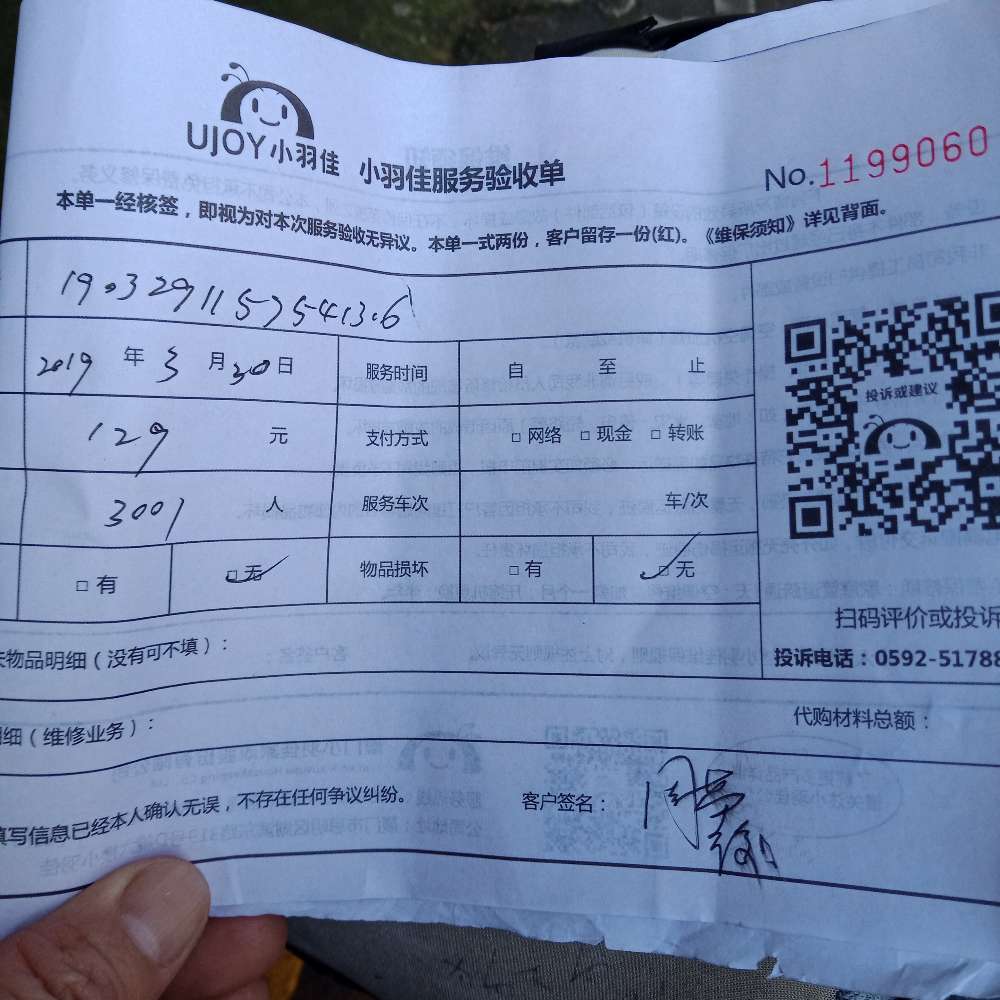 UJOY小羽佳 小羽佳服务验收单 No.1199060
本单一经核签，即视为对本次服务验收无异议。本单一式两份，客户留存一份(红)。《维保须知》详见背面。
2019 年 3 月 30 日 服务时间 自 至 止
129 元 支付方式 □ 网络 □ 现金 □ 转账
3001 人 服务车次 车/次
□ 有 □ 无 物品损坏 □ 有 □ 无
投诉或建议
扫码评价或投诉
投诉电话：0592-51788
物品明细（没有可不填）：
细（维修业务）： 代购材料总额：
填写信息已经本人确认无误，不存在任何争议纠纷。 客户签名：